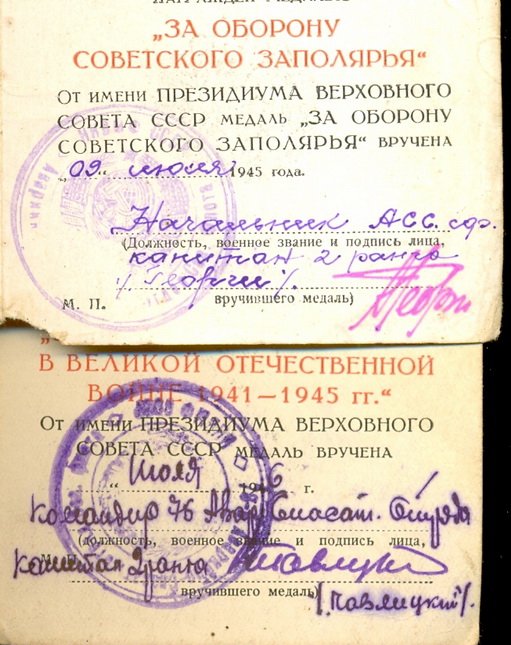 НАГРАЖДЕН МЕДАЛЬЮ
„ЗА ОБОРОНУ
СОВЕТСКОГО ЗАПОЛЯРЬЯ“
От имени ПРЕЗИДИУМА ВЕРХОВНОГО
СОВЕТА СССР МЕДАЛЬ „ЗА ОБОРОНУ
СОВЕТСКОГО ЗАПОЛЯРЬЯ“ ВРУЧЕНА
„09“ июля 1945 года.
Начальник АСС сф.
(Должность, военное звание и подпись лица,
капитан 2 ранга
М. П. вручившего медаль)
В ВЕЛИКОЙ ОТЕЧЕСТВЕННОЙ
ВОЙНЕ 1941—1945 гг.“
От имени ПРЕЗИДИУМА ВЕРХОВНОГО
СОВЕТА СССР МЕДАЛЬ ВРУЧЕНА
“ Июля 1946 г.
Командир 76 Авар. Спасат. Отряда
(должность, военное звание и подпись лица,
капитан 2 ранга
вручившего медаль)
/Павлицкий/.